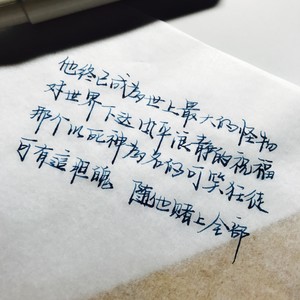 他终已成为世上最大的怪物
好世界下达风平浪静的祝福
那个以死神為名的可笑狂徒
可有這胆魄 随他赌上全部